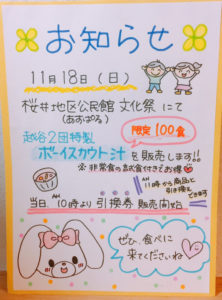 お知らせ
11月18日(日)
桜井地区公民館 文化祭 にて
(あすぱる)
限定 100食
越谷2団特製
ボーイスカウト汁 を販売します!!
※非常食の試食付きでお得
AM
11時から商品と
引き換えできます
当日 AM 10時より 引換券 販売開始
ぜひ、食べに
来てくださいね